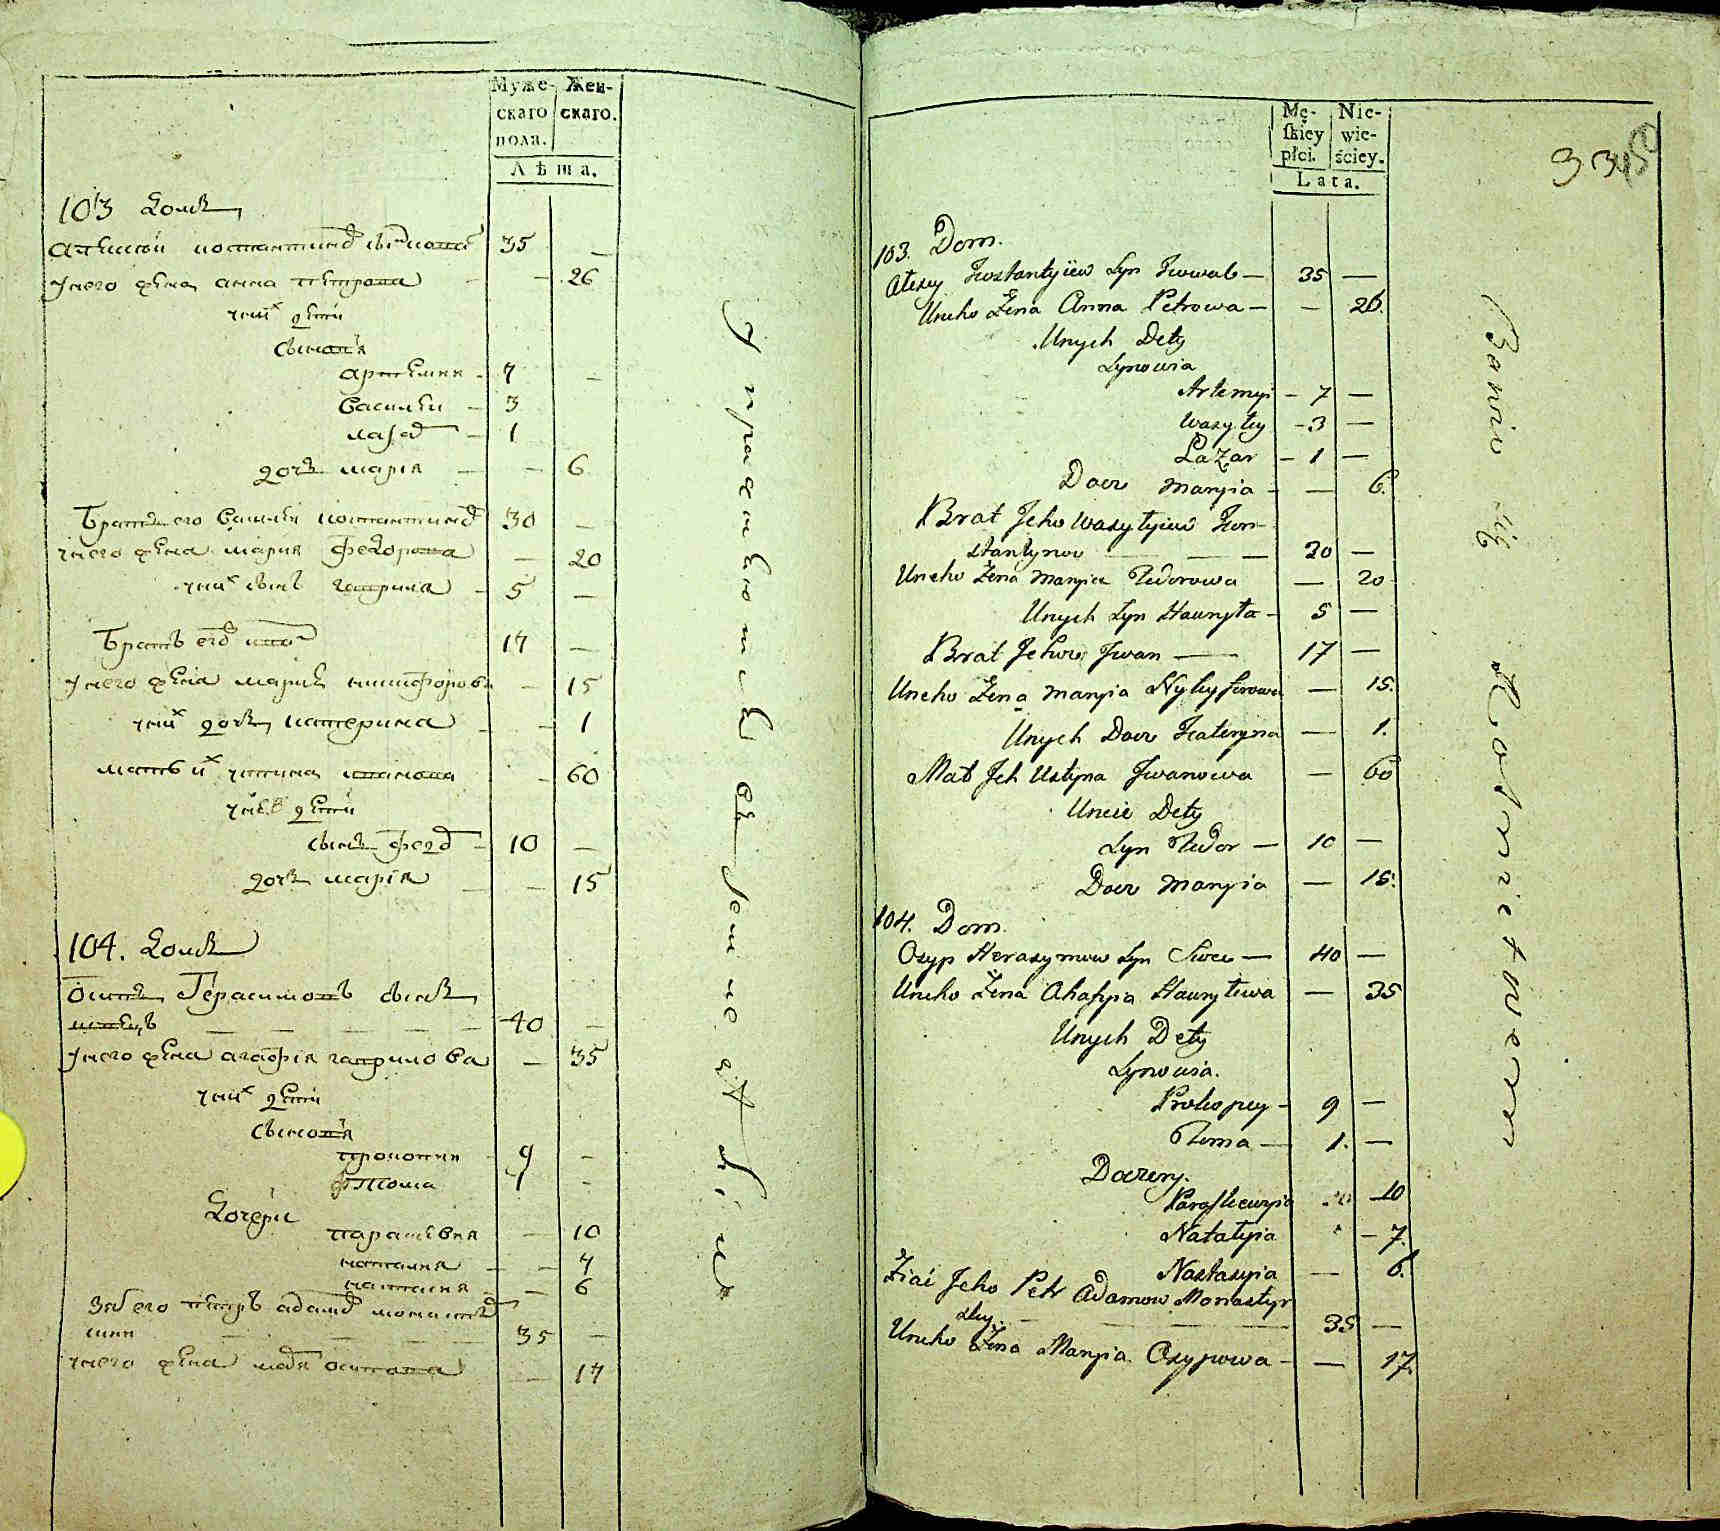 Муже-
скаго
пола.
Жен-
скаго.
Лѣта.
103 домъ
35 —
у него жена анна петрова — — 26
у них дети
сыновя
артемий — 7 —
василей — 3
лазар — 1
дочь мария — — 6
братъ его василей костантинов 30 —
у него жена мария федорова — 20
у них сынъ гаврила — 5 —
братъ его иван 17 —
у него жена мария никифорова — 15
у них дочь катерина — — 1
мать их устина иванова — 60
у нее дети
сынъ федор — 10 —
дочь мария — — 15
104. домъ
осипъ Герасимовъ сынъ
швецъ — — — — 40 —
у него жена агафія гаврилова — 35
у них дети
сыновя
прокопий 9 —
фома 1 -
дочери
парасковия — 10
наталия — — 7
настасия — 6
зять его петръ адамов монастыр
ский — — — 35 —
у него жена мария осипова — 17
упражняются в хлебопашестве
Mę-
ſkiey
płci.
Nie-
wie-
ściey.
Lata.
335
103. Dom.
Alexey Konstantyiew Syn Kowal — 35 —
Uneho Żena Anna Petrowa — — 26.
Unych Dety
Synowia
Artemyi — 7 —
Wasyley — 3 —
Lazar — 1 —
Docz Maryia — — 6.
Brat Jeho Wasylyiew Kon-
stantynow — — — 30 —
Uneho Żena Maryia Fedorowa — 20
Unych Syn Hawryła — 5 —
Brat Jehow Jwan — 17 —
Uneho Żena Maryia Nykyforowa — 15.
Unych Docz Kateryna — 1.
Mat Jch Ustyna Jwanowa — 60
Uneie Dety
Syn Fedor — 10 —
Docz Maryia — 15.
104. Dom.
Osyp Herasymow Syn Szwec — 40 —
Uneho Żena Ahafyia Hawryłowa — 35
Unych Dety
Synowia.
Prokopey — 9 —
Foma — 1. —
Doczery.
Paraskewyia — 10
Natalyia — 7.
Nastasyia — 6.
Ziat Jeho Petr Adamow Monastyr
sky. — — — 35 —
Uneho Żena Maryia Osypowa — — 17.
Bawią się Rolnictwem